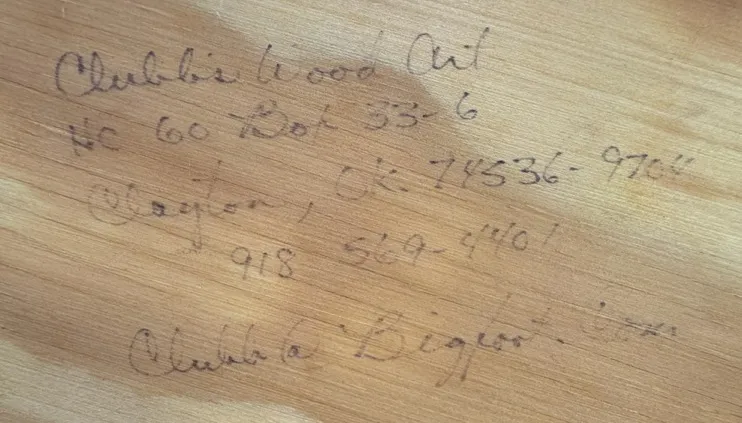 Clubb's Wood Art
HC 60 Box 33-6
Clayton, Ok. 74536-9704
918 569-4401
Clubb@Bigfoot.Com